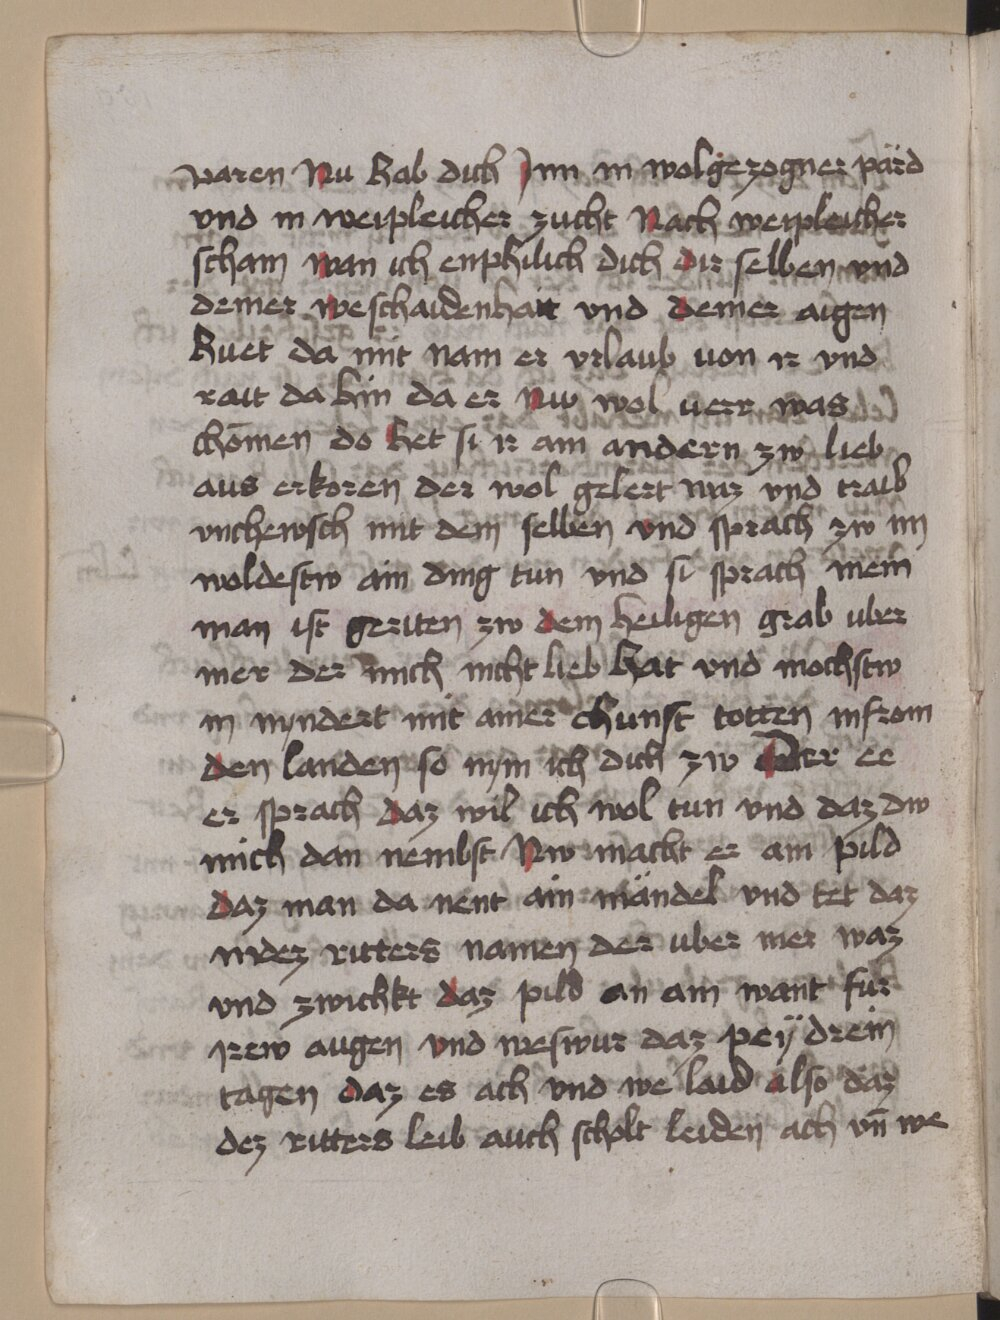 varen Nu hab dich Jnn in wolgezogner pärd
vnd in weipleicher zucht Nach weipleicher
scham wan ich enphilich dich dir selben vnd
deiner weschaidenhait vnd deiner aigen
huet da mit nam er vrlaub von ir vnd
rait da hin da er Nw wol verr was
chömen do het si ir ain andern zw lieb
aus erkoren der wol gelert waz vnd traib
vnchewsch mit dem selben vnd sprach zw im
woldestw ain ding tun vnd si sprach mein
man ist geriten zw dem heiligen grab vber
mer der mich nicht lieb hat vnd mochstw
in nyndert mit ainer chunst totten in from
den landen so nym ich dich zw der ee
er sprach daz wil ich wol tun vnd daz dw
mich dan nembst Nw macht er ain pild
Daz man da nent ain mändel vnd tet daz
in dez ritters namen der vber mer waz
vnd zwichkt daz pild an ain want fur
irew augen vnd weswur daz peÿ drein
tagen daz es ach vnd we laid also daz
dez ritters leib auch scholt leiden ach vn̄ we